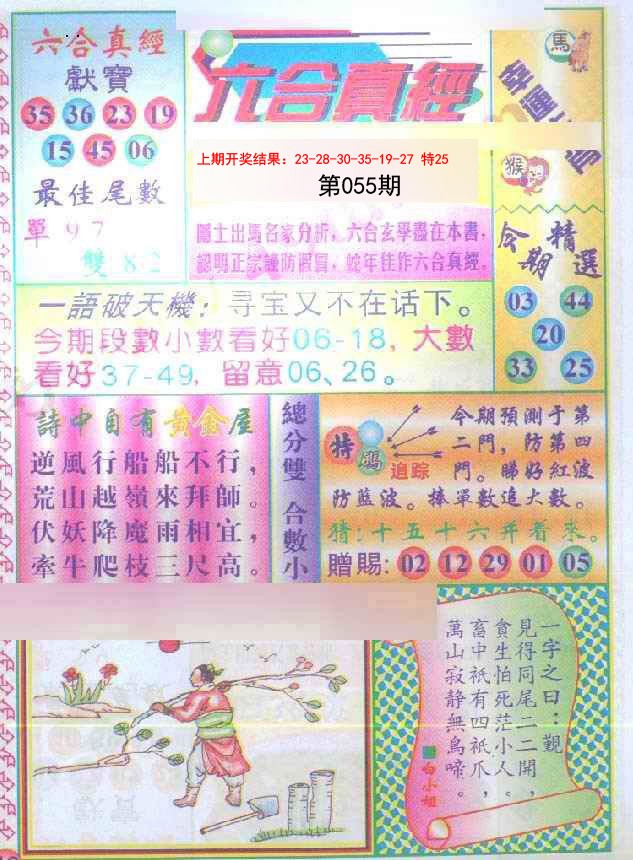 六合真經
獻寶
35 36 23 19
15 45 06
最佳尾數
單 9 7
雙 8 2
六合真經
上期开奖结果：23-28-30-35-19-27 特25
第055期
隱士出馬名家分析，六合玄學盡在本書，
認明正宗謹防假冒，蛇年佳作六合真經。
幸運
馬
猴
今期精選
03 44
20
33 25
一語破天機：寻宝又不在话下。
今期段數小數看好06-18，大數
看好37-49，留意06、26。
詩中自有黃金屋
逆風行船船不行，
荒山越嶺來拜師。
伏妖降魔雨相宜，
牽牛爬枝三尺高。
總分雙 合數小
特碼
追踪
今期預測于第
二門，防第四
門。睇好紅波
防藍波。捧單數追大數。
猜：十五十六开看來。
贈賜：02 12 29 01 05
一字之曰：觀
見得同尾二二開，
貪生怕死茫小人。
畜中祇有四祇爪，
萬山寂静無鳥啼。
白小姐